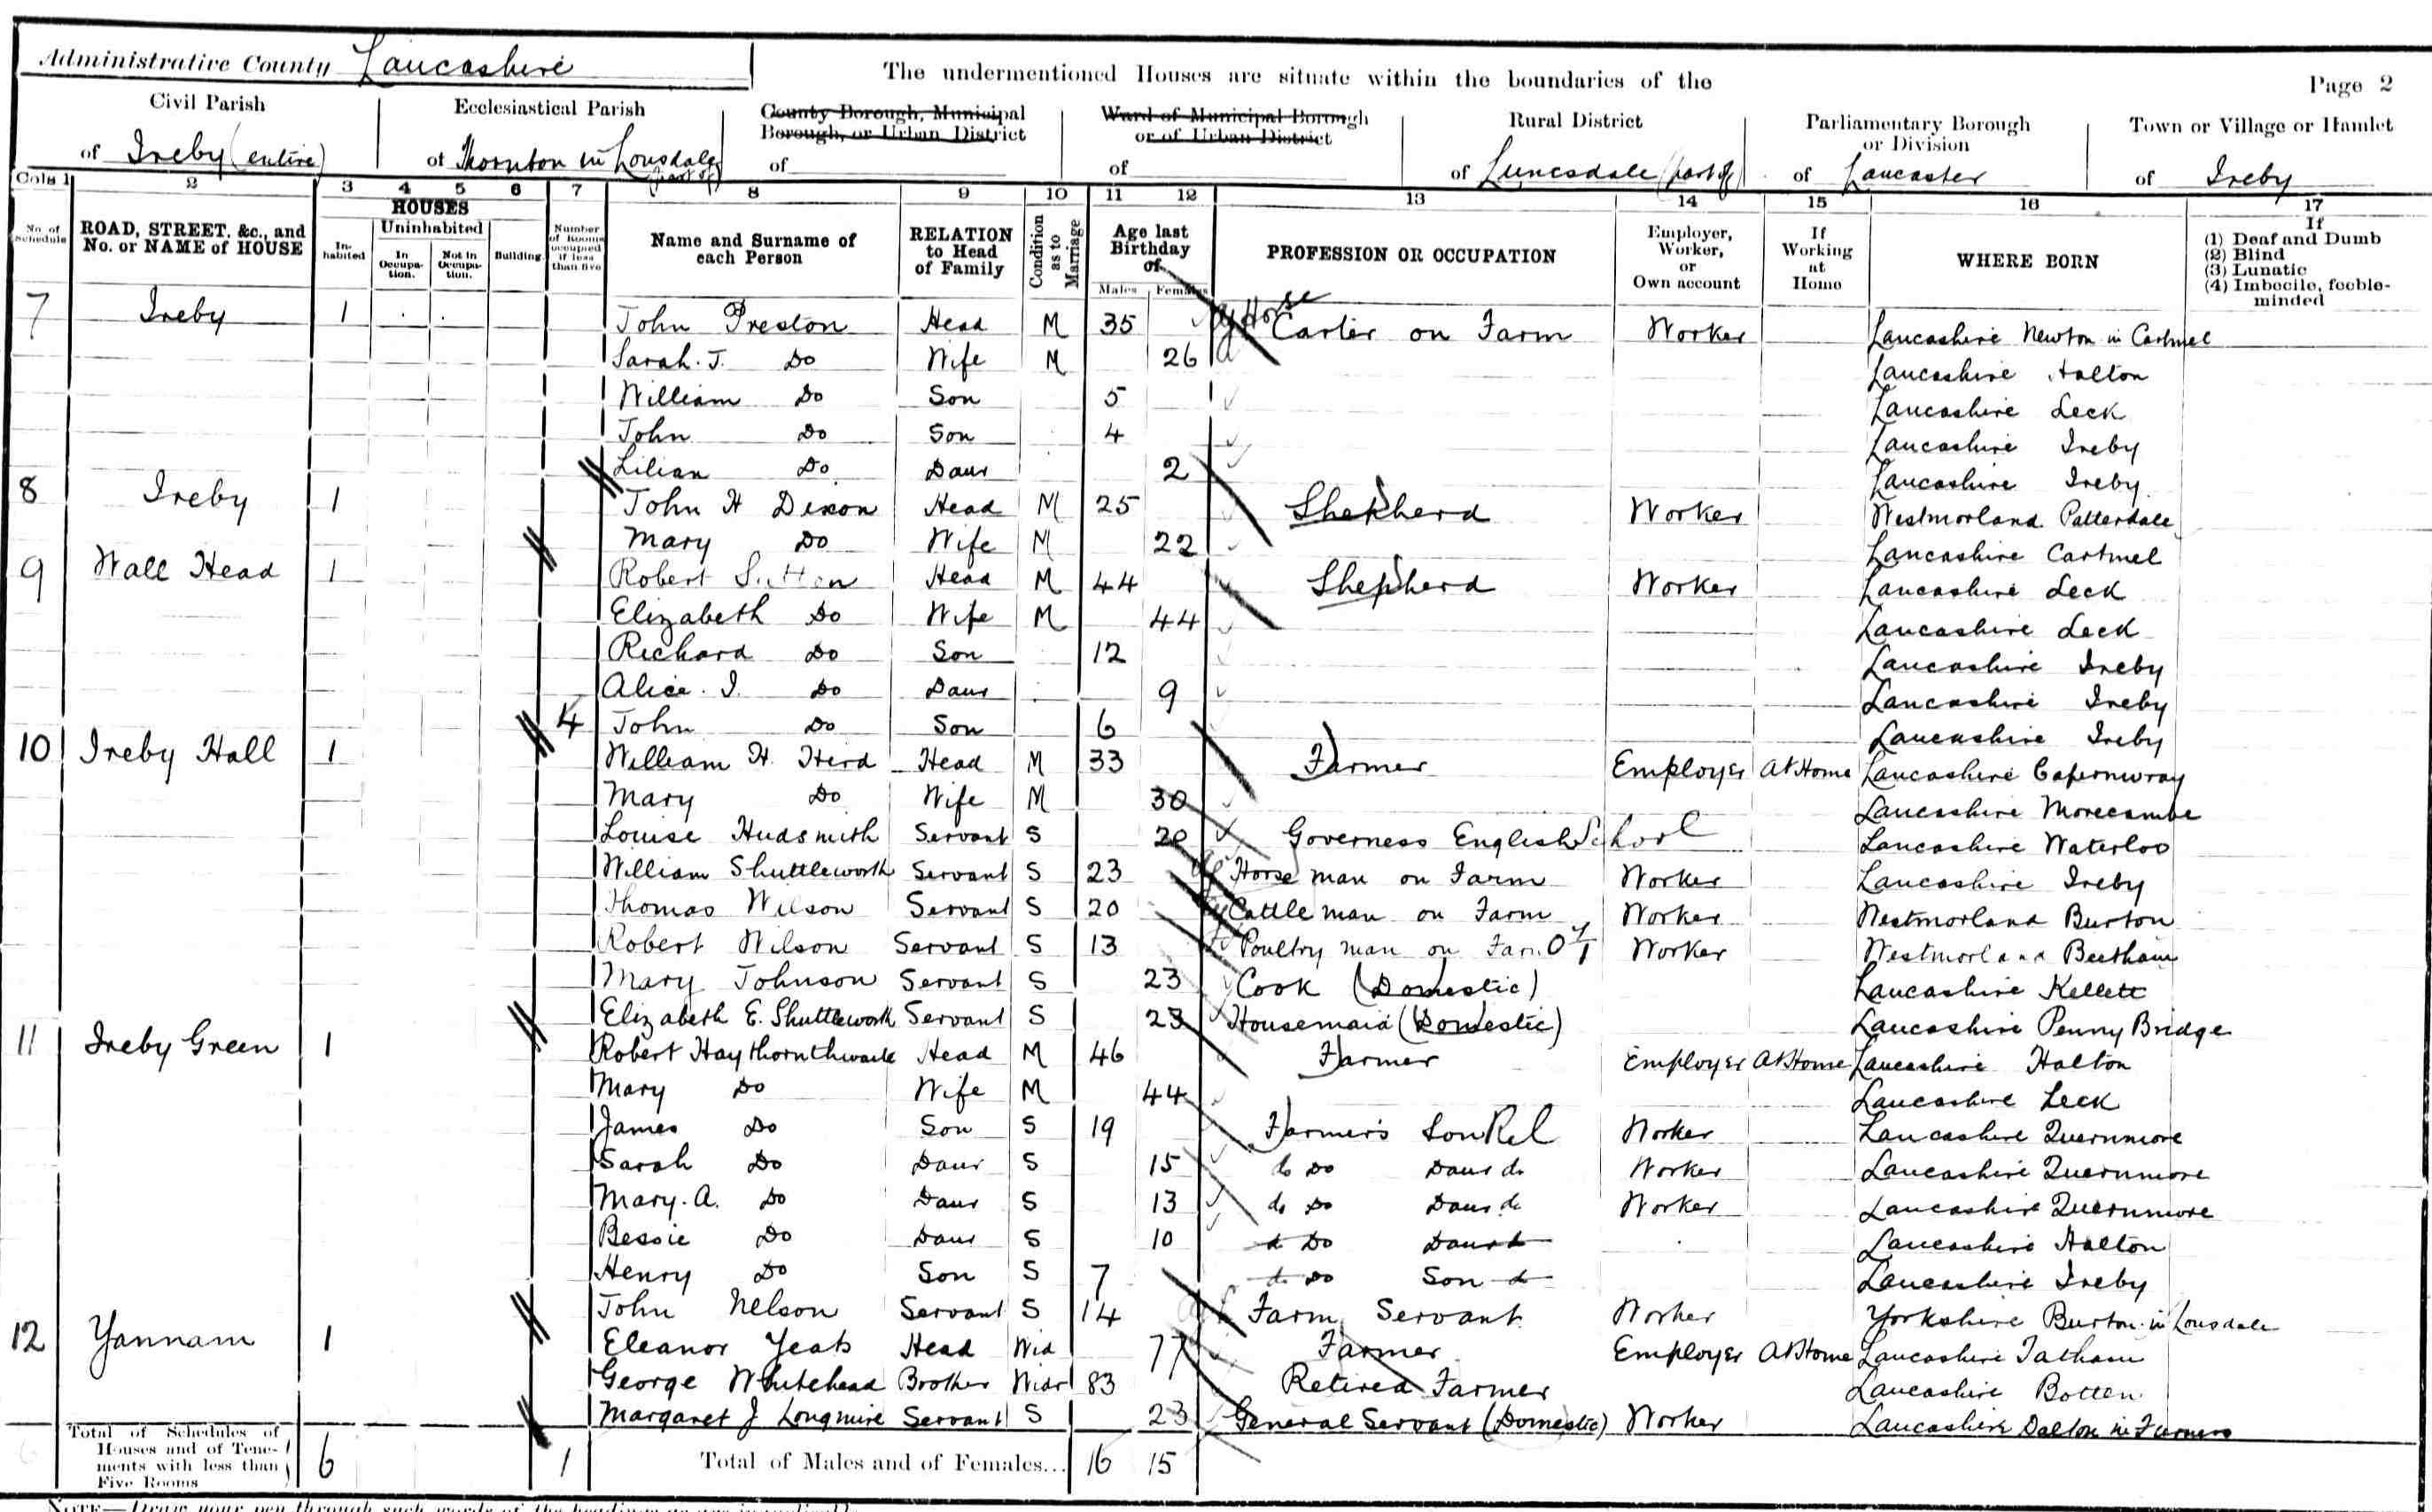 Administrative County Lancashire
The undermentioned Houses are situate within the boundaries of the
Page 2
Civil Parish
of Ireby (entire)
Ecclesiastical Parish
of Thornton in Lonsdale (part of)
County Borough, Municipal
Borough, or Urban District
of
Ward of Municipal Borough
or of Urban District
of
Rural District
of Lunesdale (part of)
Parliamentary Borough
or Division
of Lancaster
Town or Village or Hamlet
of Ireby
Cols 1 2 3 4 5 6 7 8 9 10 11 12 13 14 15 16 17
No. of Schedule
ROAD, STREET, &c., and No. or NAME of HOUSE
HOUSES
In-habited
Uninhabited
In Occupa-tion.
Not in Occupa-tion.
Building.
Number of Rooms occupied if less than five
Name and Surname of each Person
RELATION to Head of Family
Condition as to Marriage
Age last Birthday of
Males Females
PROFESSION OR OCCUPATION
Employer, Worker, or Own account
If Working at Home
WHERE BORN
If
(1) Deaf and Dumb
(2) Blind
(3) Lunatic
(4) Imbecile, feeble-minded
7 Ireby 1 John Preston Head M 35 Horse Carter on Farm Worker Lancashire Newton in Cartmel
Sarah. J. Do Wife M 26 Lancashire Halton
William Do Son 5 Lancashire Leck
John Do Son 4 Lancashire Ireby
Lilian Do Daur 2 Lancashire Ireby
8 Ireby 1 John H Dixon Head M 25 Shepherd Worker Westmorland Patterdale
Mary Do Wife M 22 Lancashire Cartmel
9 Wall Head 1 Robert Sutton Head M 44 Shepherd Worker Lancashire Leck
Elizabeth Do Wife M 44 Lancashire Leck
Richard Do Son 12 Lancashire Ireby
Alice. I. Do Daur 9 Lancashire Ireby
4 John Do Son 6 Lancashire Ireby
10 Ireby Hall 1 William H. Herd Head M 33 Farmer Employer At Home Lancashire Capernwray
Mary Do Wife M 30 Lancashire Morecambe
Louise Hudsmith Servant S Governess English School Lancashire Waterloo
William Shuttleworth Servant S 23 Horse man on Farm Worker Lancashire Ireby
Thomas Wilson Servant S 20 Cattle man on Farm Worker Westmorland Burton
Robert Wilson Servant S 13 Poultry man on Farm Worker Westmorland Beetham
Mary Johnson Servant S 23 Cook (Domestic) Lancashire Kellett
Elizabeth E. Shuttleworth Servant S 23 Housemaid (Domestic) Lancashire Penny Bridge
11 Ireby Green 1 Robert Haythornthwaite Head M 46 Farmer Employer At Home Lancashire Halton
Mary Do Wife M 44 Lancashire Leck
James Do Son S 19 Farmer's Son Rel Worker Lancashire Quernmore
Sarah Do Daur S 15 do Do Daur do Worker Lancashire Quernmore
Mary. A. Do Daur S 13 do Do Daur do Worker Lancashire Quernmore
Bessie Do Daur S 10 do Do Daur do Lancashire Halton
Henry Do Son S 7 do Do Son do Lancashire Ireby
John Nelson Servant S 14 Farm Servant Worker Yorkshire Burton in Lonsdale
12 Yannam 1 Eleanor Yeats Head Wid 77 Farmer Employer At Home Lancashire Tatham
George Whitehead Brother Widr 83 Retired Farmer Lancashire Botton
Margaret J Longmire Servant S 23 General Servant (Domestic) Worker Lancashire Dalton in Furness
Total of Schedules of Houses and of Tene-ments with less than Five Rooms 6 1 Total of Males and of Females... 16 15